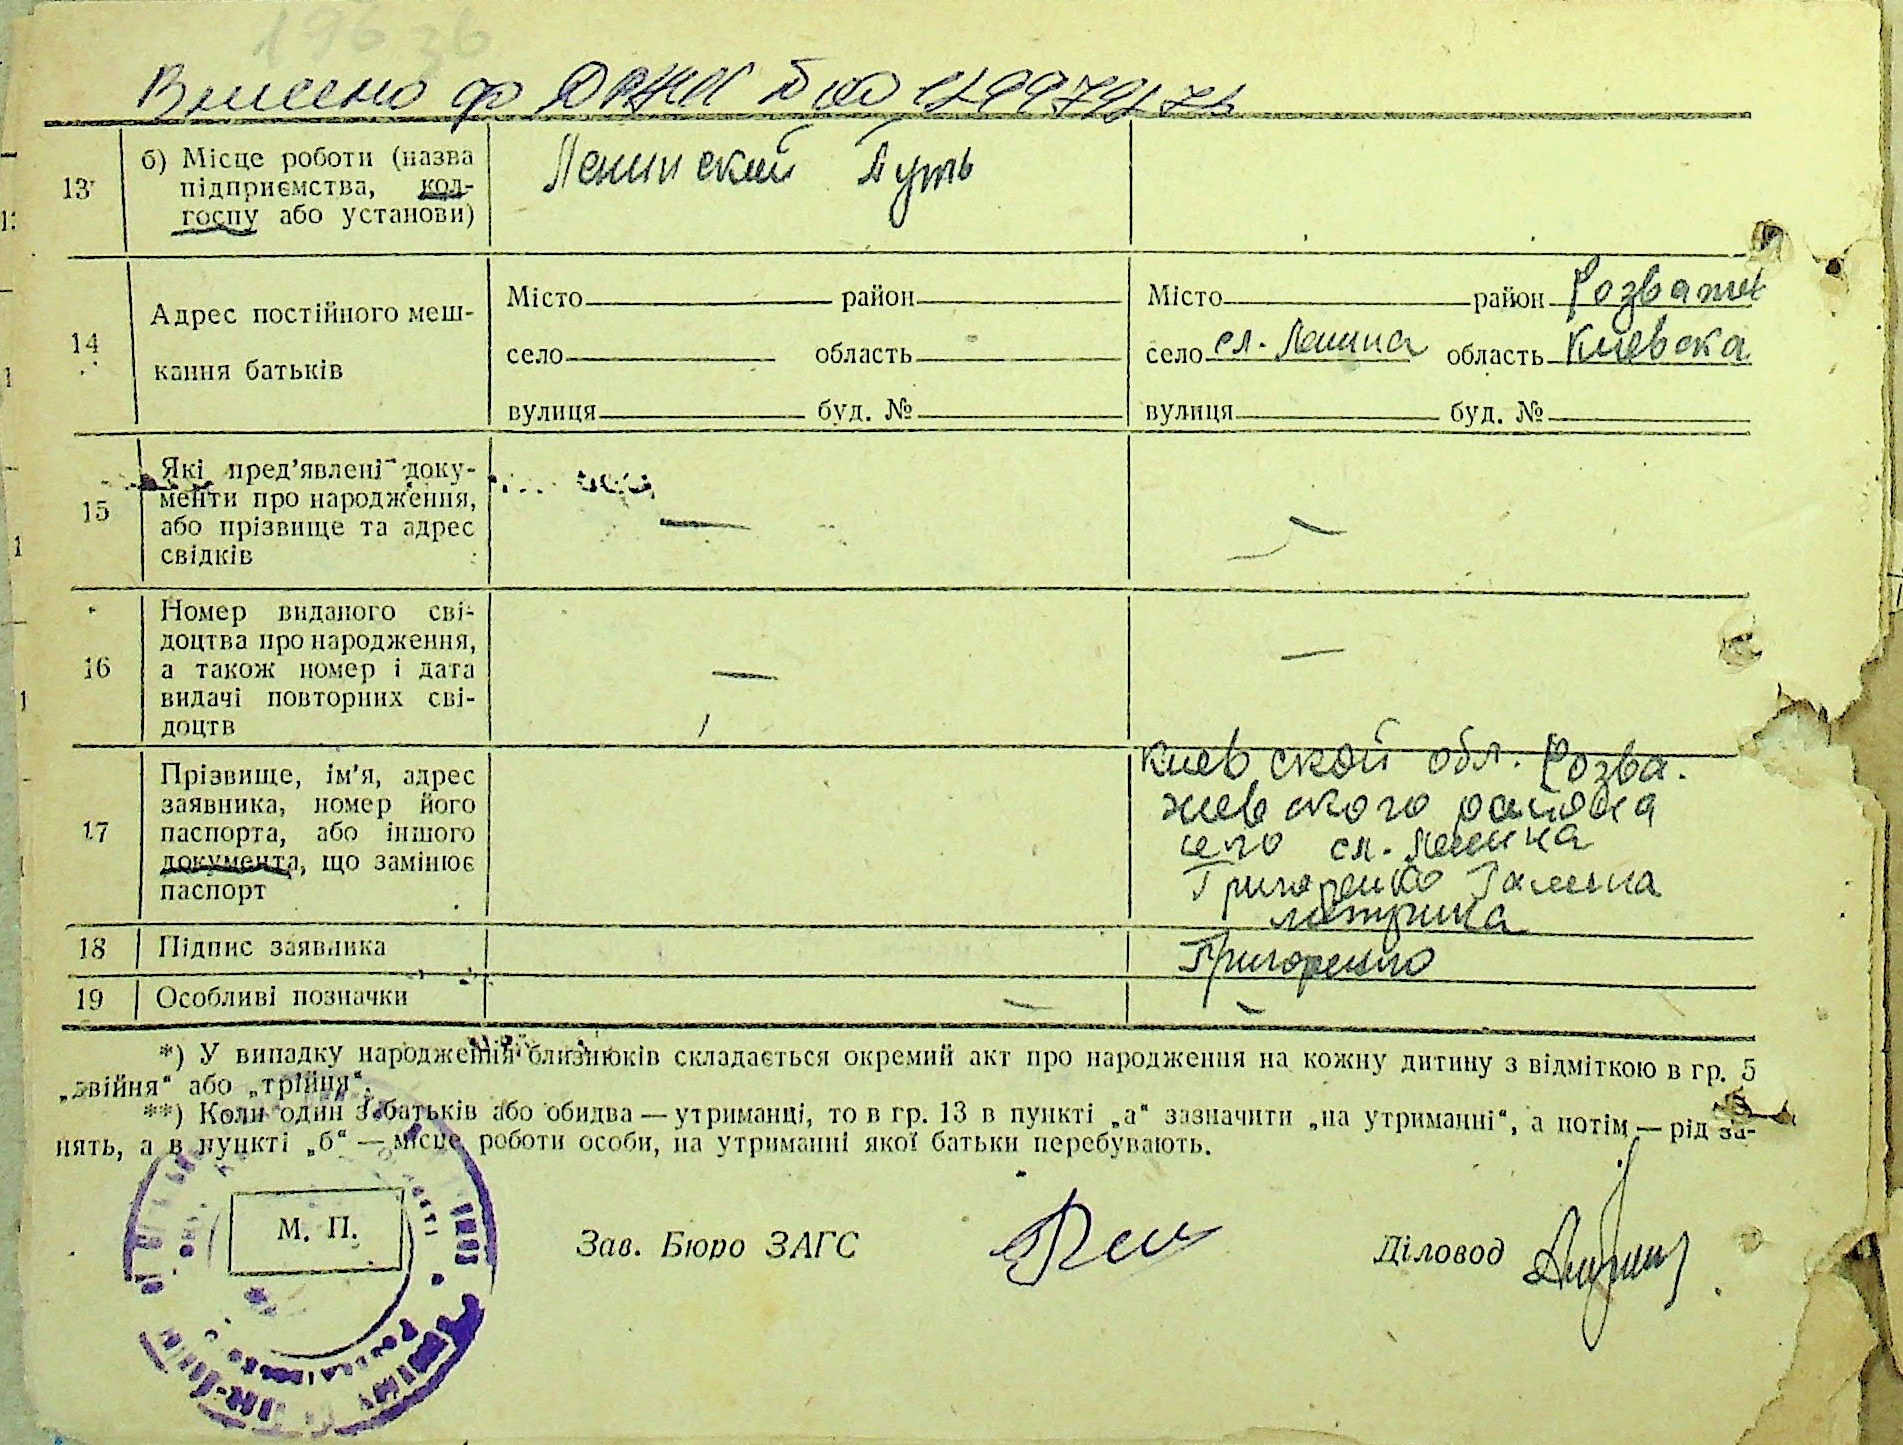 1963б
Внесено ф ДРАЦС
13
б) Місце роботи (назва
підприємства, кол-
госпу або установи)
Ленинский Путь
14
Адрес постійного меш-
кання батьків
Місто район
село область
вулиця буд. №
Місто район Розважев
село сл. Ленина область Киевска
вулиця буд. №
15
Які пред’явлені доку-
менти про народження,
або прізвище та адрес
свідків
—
—
16
Номер виданого сві-
доцтва про народження,
а також номер і дата
видачі повторних сві-
доцтв
—
—
17
Прізвище, ім’я, адрес
заявника, номер його
паспорта, або іншого
документа, що замінює
паспорт
Киевской обл. Розва.
жевского района
село сл. Ленина
Григоренко Галина
18
Підпис заявника
Григоренко
19
Особливі позначки
—
—
*) У випадку народження близнюків складається окремий акт про народження на кожну дитину з відміткою в гр. 5
„двійня“ або „трійня“.
**) Коли один з батьків або обидва — утриманці, то в гр. 13 в пункті „а“ зазначити „на утриманні“, а потім — рід за-
нять, а в пункті „б“ — місце роботи особи, на утриманні якої батьки перебувають.
М. П.
Зав. Бюро ЗАГС
Діловод